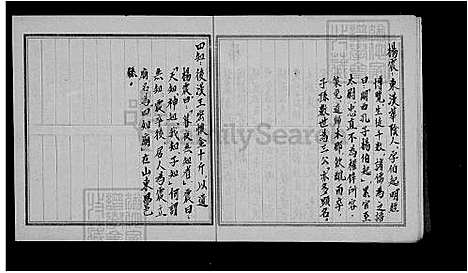 楊震，東漢華陰人，字伯起明經
博覽，生徒千數，諸儒為之語
曰關西孔子楊伯起，累官至
太尉忠直不為權倖所容，
策免遣歸本郡飲鴆而卒
子孫數世為三公亦多顯名，
四知：後漢王密懷金十斤，以遺
楊震曰：暮夜無知者」震曰：
「天知神知，我知子知」何謂
無知震卒後，后人為震立
廟名為曰四知廟」在山東昌邑
縣。
FamilySearch